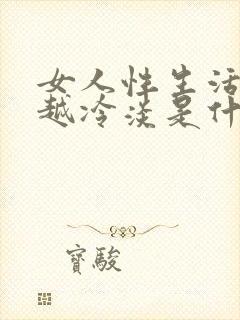 女人性生活
越冷淡是什
寶駿